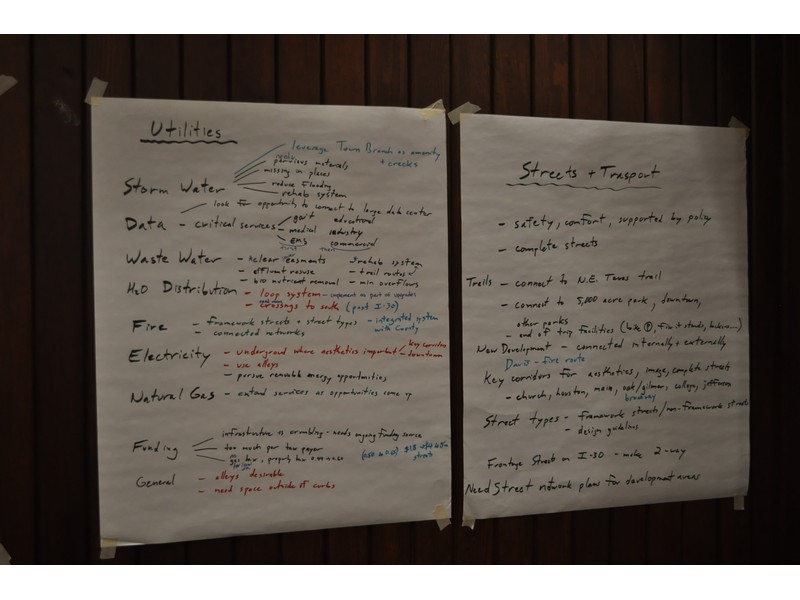 Utilities
leverage Town Branch as amenity
+ creeks
pervious materials
missing in places
reduce flooding
Storm Water
rehab system
look for opportunity to connect to large data center
Data - critical services - gov't educational
- medical industry
- EMS commercial
first
Waste Water - clear easments - rehab system
- effluent reuse - trail routes
- bio nutrient removal - min overflows
H2O Distribution - loop system - implement as part of upgrades
- crossings to south (post I-30)
Fire - framework streets + street types - integrated system
- connected networks with County
Electricity - undergroud where aesthetics important - key corridors
- downtown
- use alleys
- pursue renewable energy opportunities
Natural Gas - extend services as opportunities come up
infrastructure is crumbling - needs ongoing funding source
Funding - too much per tax payer
- gas tax, property tax
streets
General - alleys desirable
- need space outside of curbs
Streets + Trasport
- safety, comfort, supported by policy
- complete streets
Trails - connect to N.E. Texas trail
- connect to 5,000 acre park, downtown,
other parks
- end of trip facilities (bike P, fix it stands, lockers...)
New Development - connected internally + externally
Davis - fire route
Key corridors for aesthetics, image, complete streets
- church, houston, main, oak/gilmer, college, jefferson
broadway
Street types - framework streets/non-framework streets
- design guidelines
Frontage Streets on I-30 - make 2-way
Need Street network plans for development areas